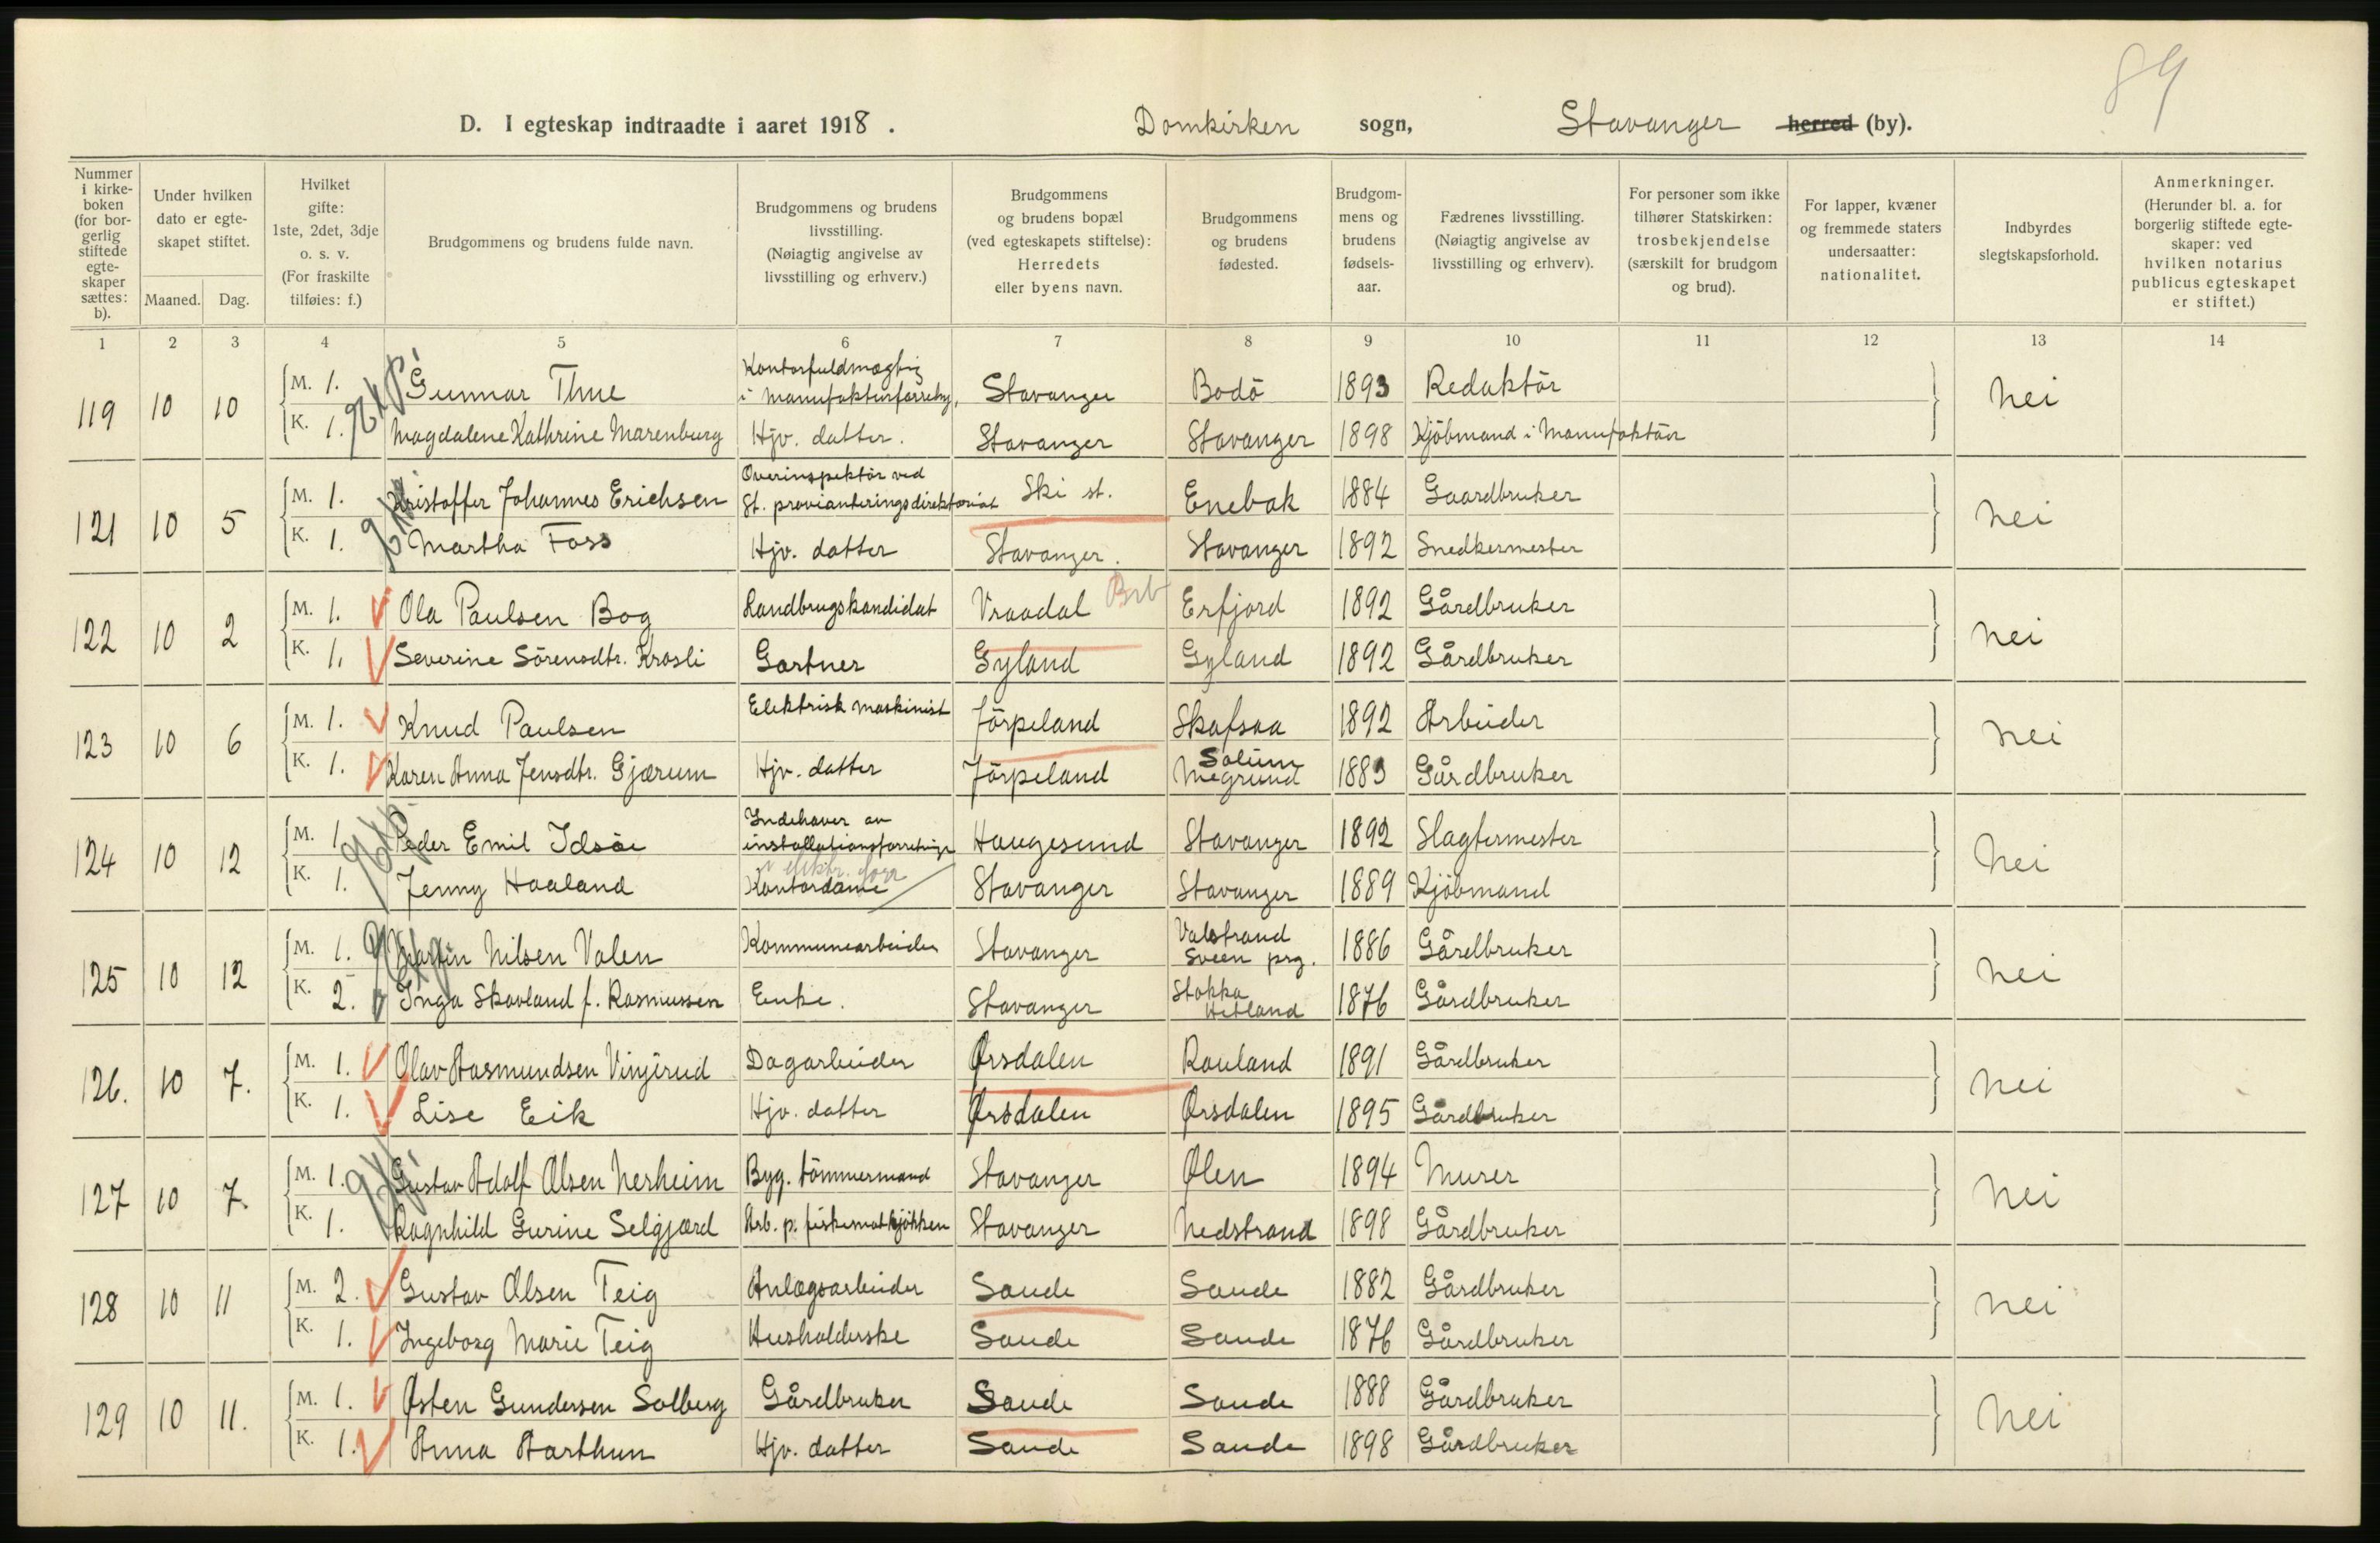 89
D. I egteskap indtraadte i aaret 1918. Domkirken sogn, Stavanger herred (by).
Nummer i kirkeboken (for borgerlig stiftede egteskaper sættes: b).
Under hvilken dato er egteskapet stiftet.
Maaned. Dag.
Hvilket gifte: 1ste, 2det, 3dje o. s. v. (For fraskilte tilføies: f.)
Brudgommens og brudens fulde navn.
Brudgommens og brudens livsstilling. (Nøiagtig angivelse av livsstilling og erhverv.)
Brudgommens og brudens bopæl (ved egteskapets stiftelse): Herredets eller byens navn.
Brudgommens og brudens fødested.
Brudgommens og brudens fødselsaar.
Fædrenes livsstilling. (Nøiagtig angivelse av livsstilling og erhverv).
For personer som ikke tilhører Statskirken: trosbekjendelse (særskilt for brudgom og brud).
For lapper, kvæner og fremmede staters undersaatter: nationalitet.
Indbyrdes slegtskapsforhold.
Anmerkninger. (Herunder bl. a. for borgerlig stiftede egteskaper: ved hvilken notarius publicus egteskapet er stiftet.)
1 2 3 4 5 6 7 8 9 10 11 12 13 14
119 10 10 M. 1. Gunnar Thue Kontorfuldmægtig i Manufakturforretng. Stavanger Bodö 1893 Redaktör nei
K. 1. Magdalene Kathrine Marenburg Hjv. datter. Stavanger Stavanger 1898 Kjöbmand i Manufaktur
121 10 5 M. 1. Kristoffer Johannes Erichsen Overinspektör ved St. provianteringsdirektoriat Ski st. Enebak 1884 Gaardbruker nei
K. 1. Martha Foss Hjv. datter Stavanger. Stavanger 1892 Snedkermester
122 10 2 M. 1. Ola Paulsen Bog Landbrugskandidat Vraadal Erfjord 1892 Gårdbruker nei
K. 1. Severine Sörensdtr. Krosli Gartner Gyland Gyland 1892 Gårdbruker
123 10 6 M. 1. Knud Paulsen Elektrisk maskinist Jörpeland Skafsaa 1892 Arbeider nei
K. 1. Karen Anna Jensdtr. Gjærum Hjv. datter Jörpeland Solum 1883 Gårdbruker
124 10 12 M. 1. Peder Emil Idsöe Indehaver av installationsforretnige Haugesund Stavanger 1892 Slagtermester nei
K. 1. Jenny Haaland Kontordame Stavanger Stavanger 1889 Kjöbmand
125 10 12 M. 1. Martin Nilsen Valen Kommunearbeider Stavanger Valstrand Sveen prg. 1886 Gårdbruker nei
K. 2. Inga Skavland f. Rasmussen Enke. Stavanger Stokka Hetland 1876 Gårdbruker
126. 10 7. M. 1. Olav Aasmundsen Vinjerud Dagarbeider Ørsdalen Rauland 1891 Gårdbruker nei
K. 1. Lise Eik Hjv. datter Ørsdalen Ørsdalen 1895 Gårdbruker
127 10 7. M. 1. Gustav Adolf Olsen Nerheim Byg. tömmermand Stavanger Ølen 1894 Murer nei
K. 1. Ragnhild Gurine Selgjærd Arb. p. fiskematkjökken Stavanger Nedstrand 1898 Gårdbruker
128 10 11 M. 2. Gustav Olsen Teig Anlægsarbeider Saude Saude 1882 Gårdbruker nei
K. 1. Ingeborg Marie Teig Husholderske Saude Saude 1876 Gårdbruker
129 10 11. M. 1. Østen Gundersen Solberg Gårdbruker Saude Saude 1888 Gårdbruker nei
K. 1. Anna Aarthun Hjv. datter Saude Saude 1898 Gårdbruker